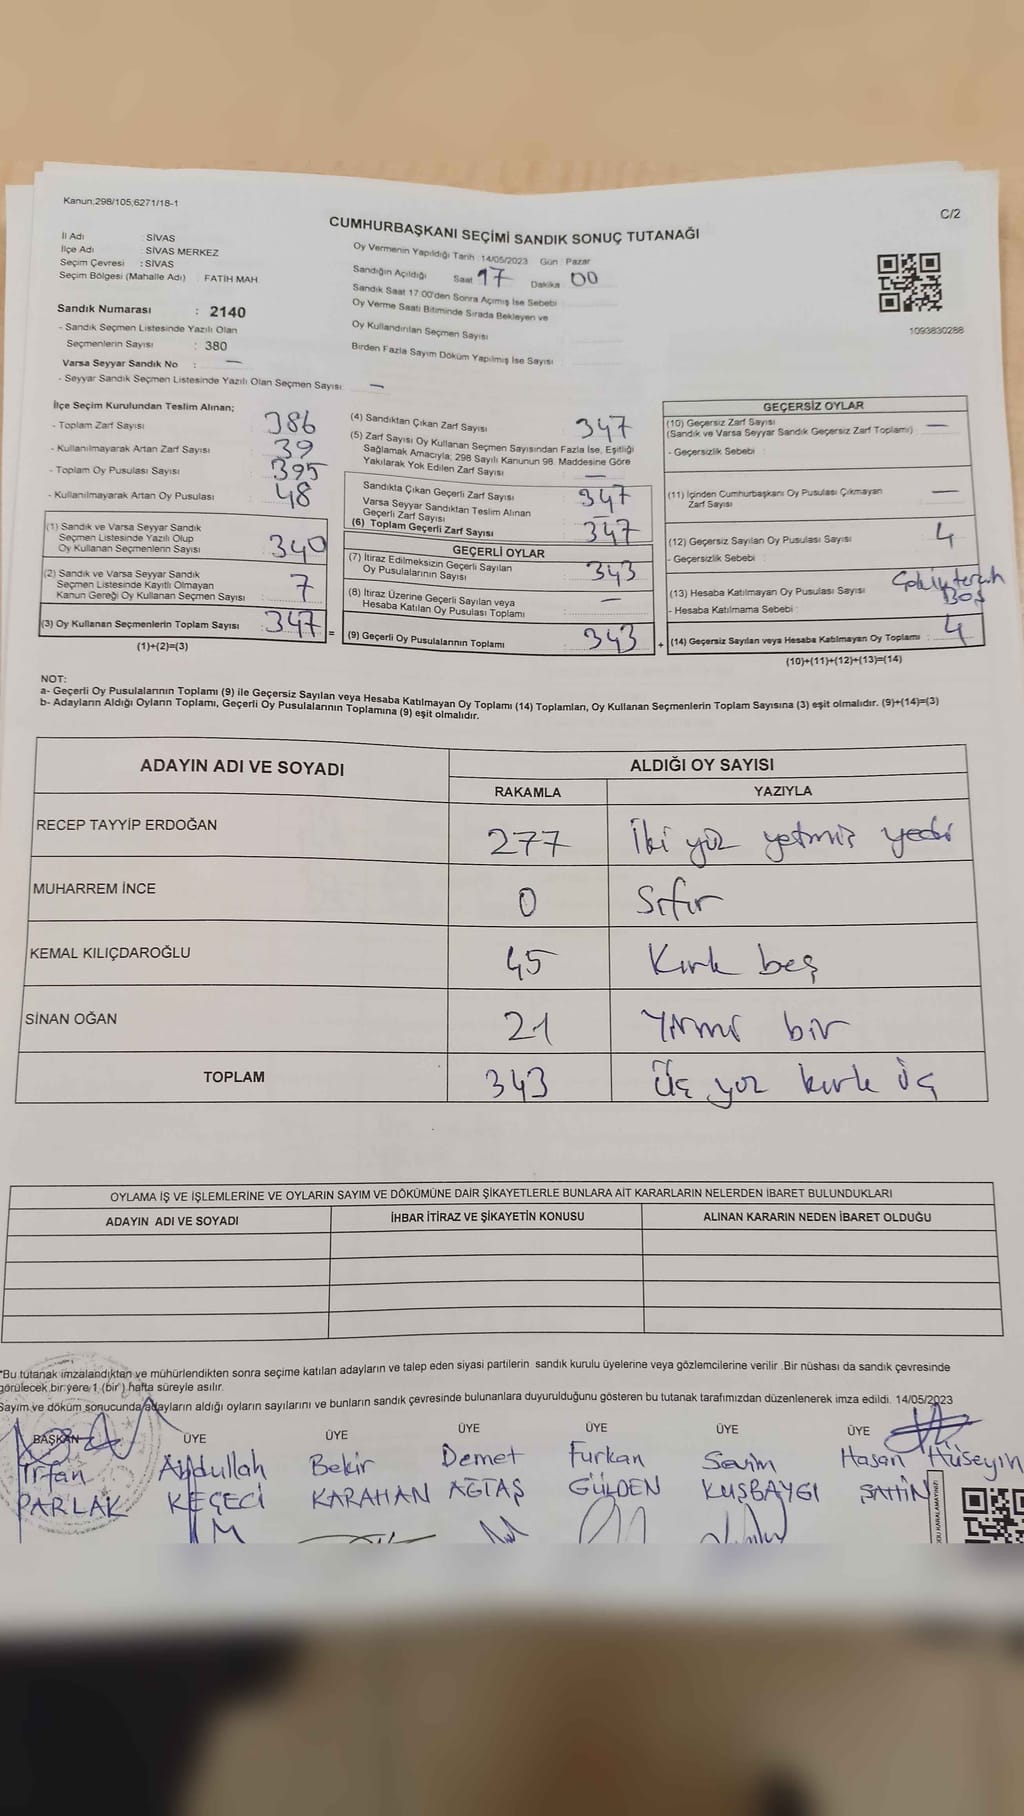 Kanun;298/105;6271/18-1
C/2
CUMHURBAŞKANI SEÇİMİ SANDIK SONUÇ TUTANAĞI
İl Adı : SİVAS
İlçe Adı : SİVAS MERKEZ
Seçim Çevresi : SİVAS
Seçim Bölgesi (Mahalle Adı) : FATİH MAH
Sandık Numarası : 2140
- Sandık Seçmen Listesinde Yazılı Olan
Seçmenlerin Sayısı : 380
Varsa Seyyar Sandık No : —
- Seyyar Sandık Seçmen Listesinde Yazılı Olan Seçmen Sayısı: —
Oy Vermenin Yapıldığı Tarih :14/05/2023 Gün : Pazar
Sandığın Açıldığı Saat 17 Dakika 00
Sandık Saat 17:00'den Sonra Açımış İse Sebebi
Oy Verme Saati Bitiminde Sırada Bekleyen ve
Oy Kullandırılan Seçmen Sayısı
Birden Fazla Sayım Döküm Yapılmış İse Sayısı
1093830288
İlçe Seçim Kurulundan Teslim Alınan;
- Toplam Zarf Sayısı 386
- Kullanılmayarak Artan Zarf Sayısı 39
- Toplam Oy Pusulası Sayısı 395
- Kullanılmayarak Artan Oy Pusulası 48
(1) Sandık ve Varsa Seyyar Sandık
Seçmen Listesinde Yazılı Olup
Oy Kullanan Seçmenlerin Sayısı 340
(2) Sandık ve Varsa Seyyar Sandık
Seçmen Listesinde Kayıtlı Olmayan
Kanun Gereği Oy Kullanan Seçmen Sayısı 7
(3) Oy Kullanan Seçmenlerin Toplam Sayısı : 347 =
(1)+(2)=(3)
(4) Sandıktan Çıkan Zarf Sayısı 347
(5) Zarf Sayısı Oy Kullanan Seçmen Sayısından Fazla İse, Eşitliği
Sağlamak Amacıyla; 298 Sayılı Kanunun 98. Maddesine Göre
Yakılarak Yok Edilen Zarf Sayısı —
Sandıkta Çıkan Geçerli Zarf Sayısı 347
Varsa Seyyar Sandıktan Teslim Alınan
Geçerli Zarf Sayısı
(6) Toplam Geçerli Zarf Sayısı 347
GEÇERLİ OYLAR
(7) İtiraz Edilmeksizin Geçerli Sayılan
Oy Pusulalarının Sayısı 343
(8) İtiraz Üzerine Geçerli Sayılan veya
Hesaba Katılan Oy Pusulası Toplamı —
(9) Geçerli Oy Pusulalarının Toplamı 343 +
GEÇERSİZ OYLAR
(10) Geçersiz Zarf Sayısı
(Sandık ve Varsa Seyyar Sandık Geçersiz Zarf Toplamı) —
- Geçersizlik Sebebi :
(11) İçinden Cumhurbaşkanı Oy Pusulası Çıkmayan
Zarf Sayısı —
(12) Geçersiz Sayılan Oy Pusulası Sayısı 4
- Geçersizlik Sebebi :
(13) Hesaba Katılmayan Oy Pusulası Sayısı
- Hesaba Katılmama Sebebi : Boş
(14) Geçersiz Sayılan veya Hesaba Katılmayan Oy Toplamı : 4
(10)+(11)+(12)+(13)=(14)
NOT:
a- Geçerli Oy Pusulalarının Toplamı (9) ile Geçersiz Sayılan veya Hesaba Katılmayan Oy Toplamı (14) Toplamları, Oy Kullanan Seçmenlerin Toplam Sayısına (3) eşit olmalıdır. (9)+(14)=(3)
b- Adayların Aldığı Oyların Toplamı, Geçerli Oy Pusulalarının Toplamına (9) eşit olmalıdır.
ADAYIN ADI VE SOYADI
ALDIĞI OY SAYISI
RAKAMLA YAZIYLA
RECEP TAYYİP ERDOĞAN 277 İki yüz yetmiş yedi
MUHARREM İNCE 0 Sıfır
KEMAL KILIÇDAROĞLU 45 Kırk beş
SİNAN OĞAN 21 Yirmi bir
TOPLAM 343 Üç yüz kırk üç
OYLAMA İŞ VE İŞLEMLERİNE VE OYLARIN SAYIM VE DÖKÜMÜNE DAİR ŞİKAYETLERLE BUNLARA AİT KARARLARIN NELERDEN İBARET BULUNDUKLARI
ADAYIN ADI VE SOYADI İHBAR İTİRAZ VE ŞİKAYETİN KONUSU ALINAN KARARIN NEDEN İBARET OLDUĞU
*Bu tutanak imzalandıktan ve mühürlendikten sonra seçime katılan adayların ve talep eden siyasi partilerin sandık kurulu üyelerine veya gözlemcilerine verilir .Bir nüshası da sandık çevresinde
görülecek bir yere 1 (bir) hafta süreyle asılır.
Sayım ve döküm sonucunda adayların aldığı oyların sayılarını ve bunların sandık çevresinde bulunanlara duyurulduğunu gösteren bu tutanak tarafımızdan düzenlenerek imza edildi. 14/05/2023
BAŞKAN ÜYE ÜYE ÜYE ÜYE ÜYE ÜYE
İrfan Abdullah Bekir Demet Furkan Sevim Hasan Hüseyin
PARLAK KEÇECİ KARAHAN AĞTAŞ GÜLDEN KUŞBAYGI ŞAHİN